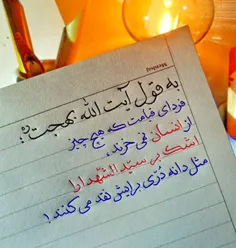 به قول آیت الله بهجت :
فردای قیامت که هیچ چیز
از انسان نمی خرند،
اشک بر سیّد الشهدا را
مثل دانه دُرّی برایش نقد می کنند !